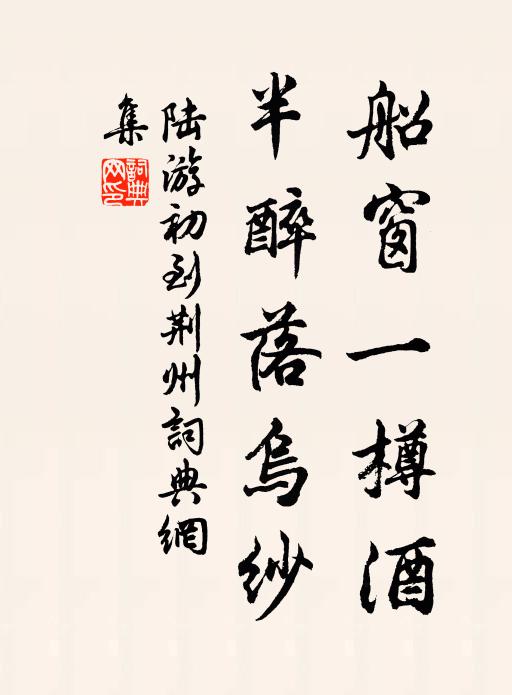 船窗一樽酒
半醉落烏紗
陸游初到荆州詞典網
集
詞典網印